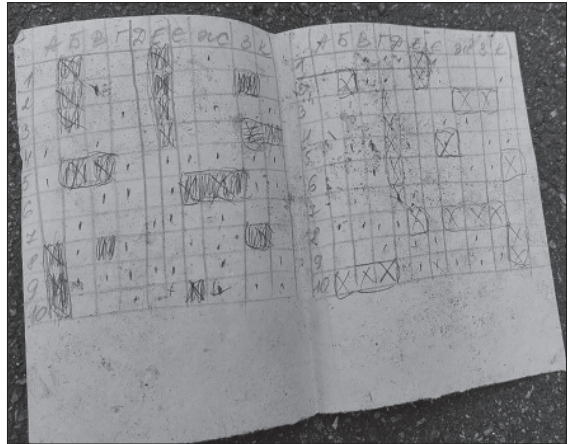 А Б В Г Д Е Є Ж З К
1
2
3
4
5
6
7
8
9
10
А Б В Г Д Е Є Ж З К
1
2
3
4
5
6
7
8
9
10